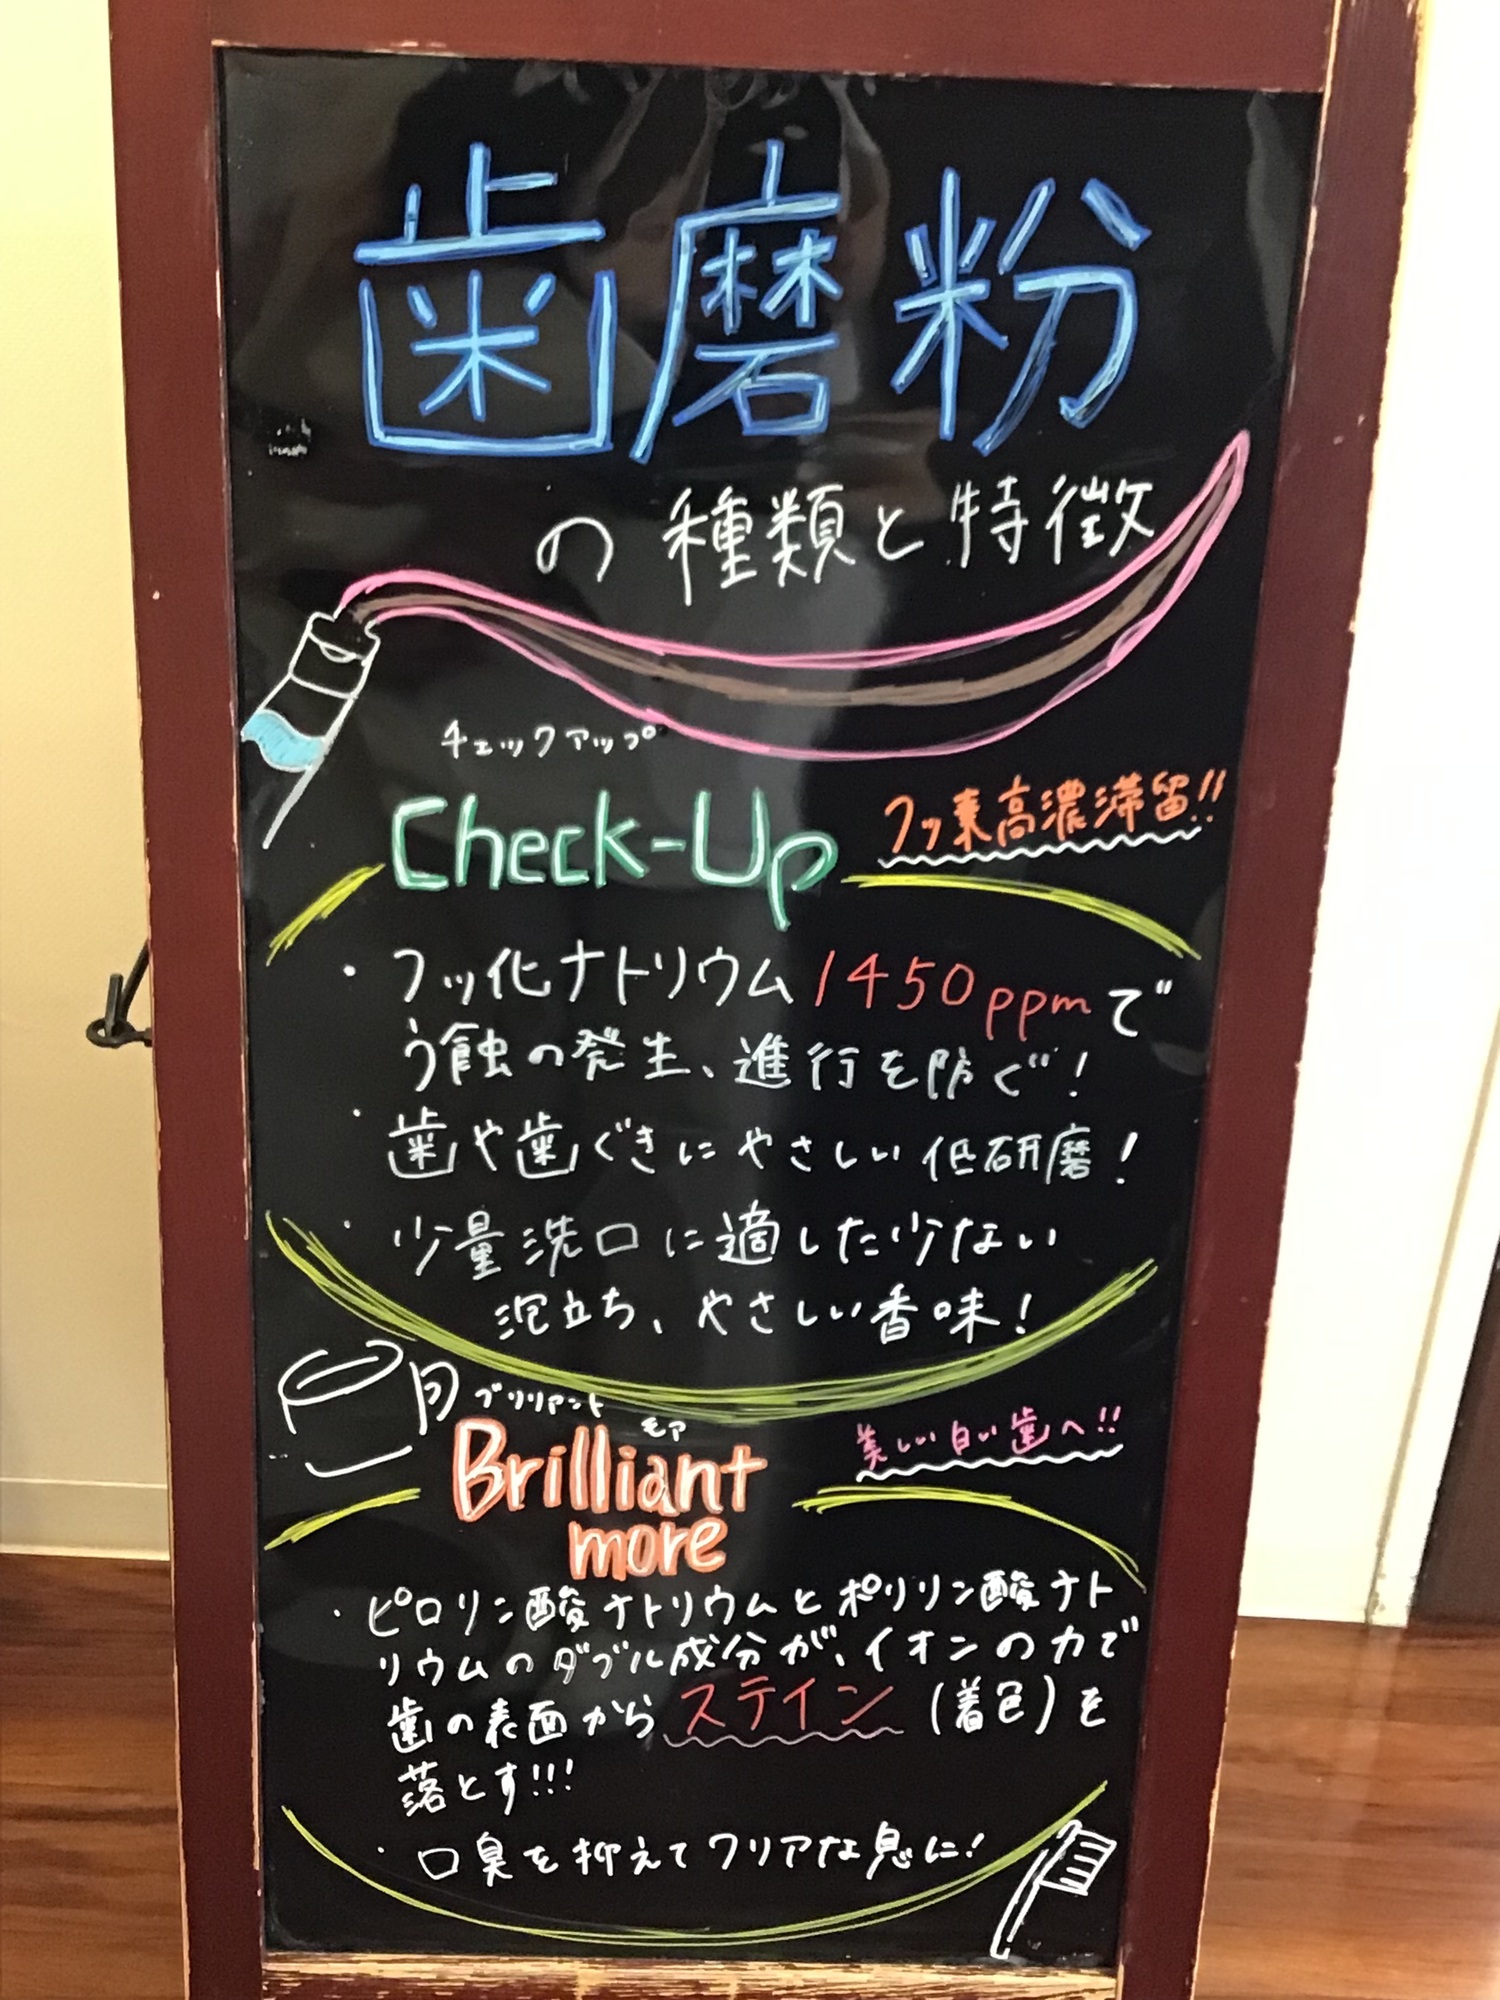 歯磨粉
の種類と特徴
チェックアップ
Check-Up
フッ素高濃滞留!!
・フッ化ナトリウム1450ppmで
う蝕の発生、進行を防ぐ!
・歯や歯ぐきにやさしい低研磨!
・少量洗口に適した少ない
泡立ち、やさしい香味!
ブリリアント
モア
Brilliant
more
美しい白い歯へ!!
・ピロリン酸ナトリウムとポリリン酸ナト
リウムのダブル成分が、イオンの力で
歯の表面からステイン(着色)を
落とす!!!
・口臭を抑えてクリアな息に!